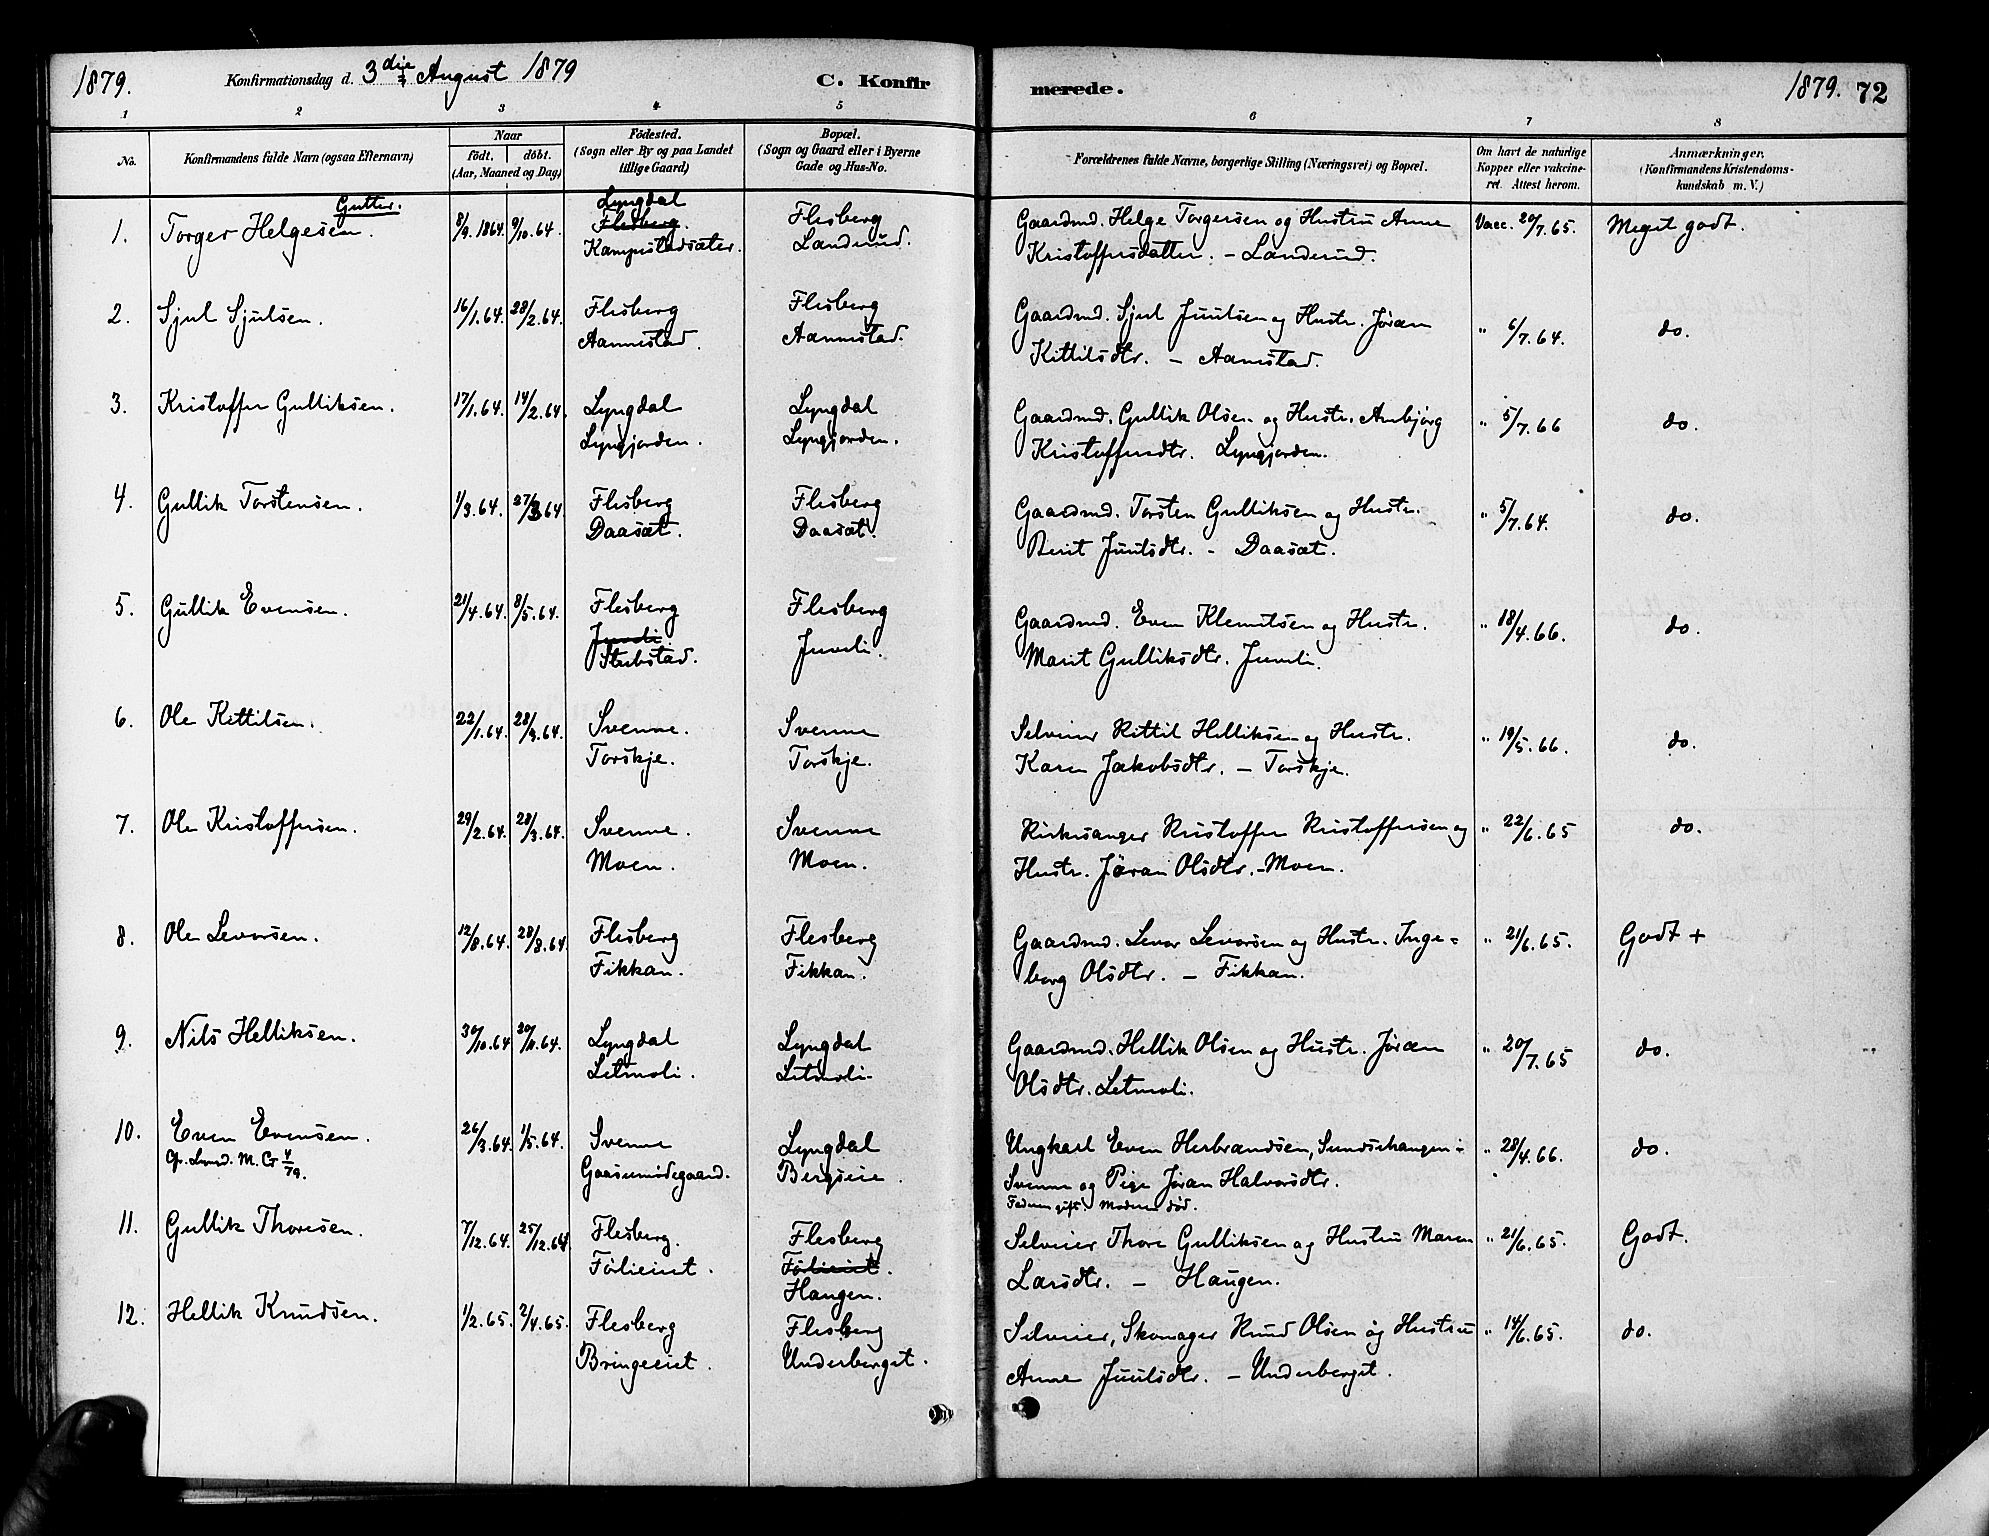 1879.
Konfirmationsdag d. 3die August 1879
C. Konfir
merede.
1879. 72
1 2 3 4 5 6 7 8
No.
Konfirmandens fulde Navn (ogsaa Efternavn)
Naar
födt. döbt.
(Aar, Maaned og Dag)
Födested.
(Sogn eller By og paa Landet
tillige Gaard)
Bopæl.
(Sogn og Gaard eller i Byerne
Gade og Hus-No.
Forældrenes fulde Navne, borgerlige Stilling (Næringsvei) og Bopæl.
Om havt de naturlige
Kopper eller vakcine-
ret. Attest herom.
Anmærkninger.
(Konfirmandens Kristendoms-
kundskab m. V.)
Gutter.
1. Torger Helgesen. 8/9. 1864. 9/10. 64. Lyngdal Flesberg. Flesberg Gaardmd. Helge Torgersen og Hustru Anne Vacc. 20/7. 65. Meget godt.
Kampestadsæter. Landerud. Kristoffersdatter. – Landerud.
2. Sjul Sjulsen. 16/1. 64. 28/2. 64. Flesberg Flesberg Gaardmd. Sjul Juulsen og Hustr. Jøran " 6/7. 64. do.
Aannestad. Aannestad. Kittilsdtr. – Aanestad.
3. Kristoffer Gulliksen. 17/1. 64. 14/2. 64. Lyngdal Lyngdal Gaardmd. Gullik Olsen og Hustr. Anbjørg " 5/7. 66 do.
Lyngjorden. Lyngjorden. Kristoffersdtr. Lyngjorden.
4. Gullik Torstensen. 1/3. 64. 27/3 64. Flesberg Flesberg Gaardmd. Torsten Gulliksen og Hustr. " 5/7. 64. do.
Daaset. Daaset. Berit Juulsdtr. – Daaset.
5. Gullik Evensen. 21/4. 64. 8/5. 64. Flesberg Flesberg Gaardmd. Even Klemetsen og Hustr. " 18/4. 66. do.
Juveli Stubstad. Juveli. Marit Gulliksdtr. Juveli.
6. Ole Kittilsen. 22/1. 64. 28/3. 64. Svenne. Svenne Selveier Kittil Helliksen og Hustr. " 19/5. 66. do.
Torskje. Torskje. Karen Jakobsdtr. – Torskje.
7. Ole Kristoffersen. 29/2. 64. 28/3. 64. Svenne. Svenne Kirkesanger Kristoffer Kristoffersen og " 22/6. 65 do.
Moen. Moen. Hustr. Jøran Olsdtr. – Moen.
8. Ole Levorsen. 12/8. 64. 28/8. 64. Flesberg Flesberg Gaardmd. Levor Levorsen og Hustr. Inge= " 21/6. 65. Godt +
Fikkan. Fikkan. borg Olsdtr. – Fikkan.
9. Nils Helliksen. 30/10. 64 20/11. 64. Lyngdal Lyngdal Gaardmd. Hellik Olsen og Hustr. Jøran " 20/7. 65 do.
Letmoli. Letmoli. Olsdtr. Letmoli.
10. Even Evensen. 26/3. 64. 1/5. 64. Svenne Lyngdal Ungkarl Even Herbrandsen, Sundsehaugen i " 28/4. 66. do.
Gaasumødegaard. Bergseie. Svenne og Pige Jøran Halvorsdtr.
Faderen gift Moderen død.
11. Gullik Thoresen. 7/12. 64. 25/12. 64. Flesberg. Flesberg Selveier Thore Gulliksen og Hustru Maren " 21/6. 65. Godt.
Førlieiet. Førlieiet. Haugen. Larsdtr. – Haugen.
12. Hellik Knudsen. 1/2. 65. 2/4. 65. Flesberg Flesberg Selveier, Skomager Knud Olsen og Hustru " 14/6. 65. do.
Bringeeiet. Underberget. Anne Juulsdtr. – Underberget.